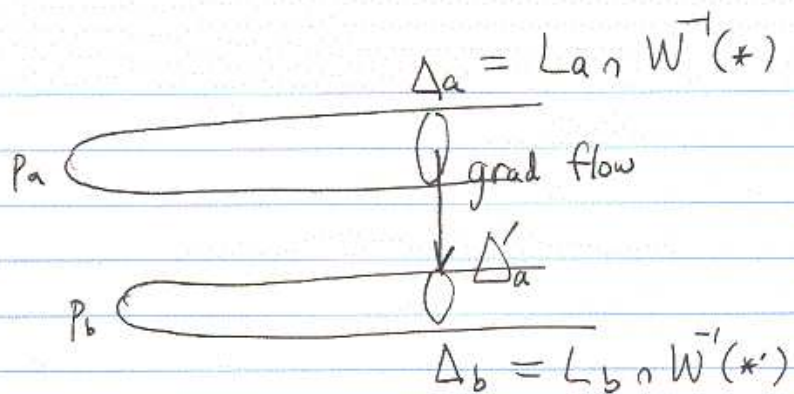 Δa = La ∩ W⁻¹(*)
Pa
grad flow
Δ'a
Pb
Δb = Lb ∩ W⁻¹(*')